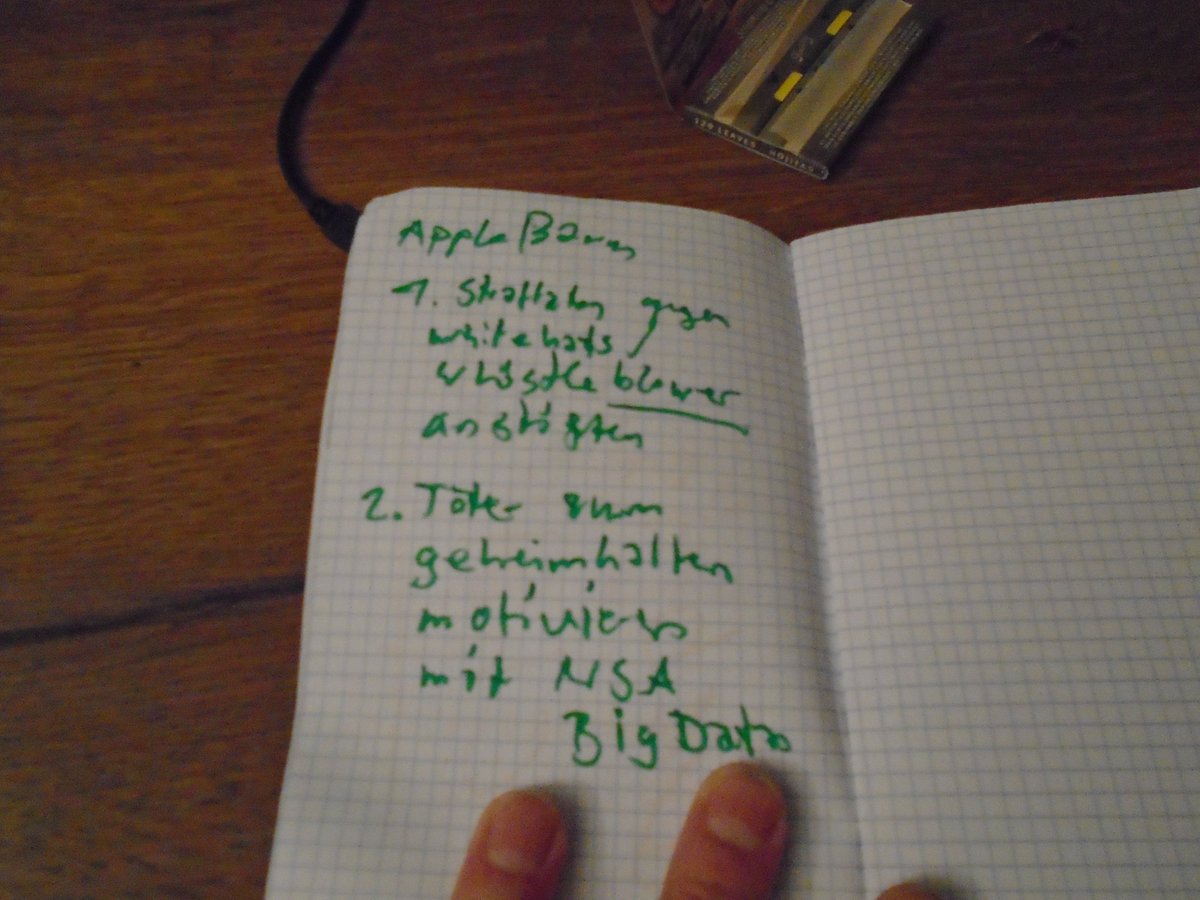 129 LEAVES
Apple
1. Straftaten gegen
whitehats /
whistleblower
anstiften
2. Täter zum
geheimhalten
motivieren
mit NSA
Big Data